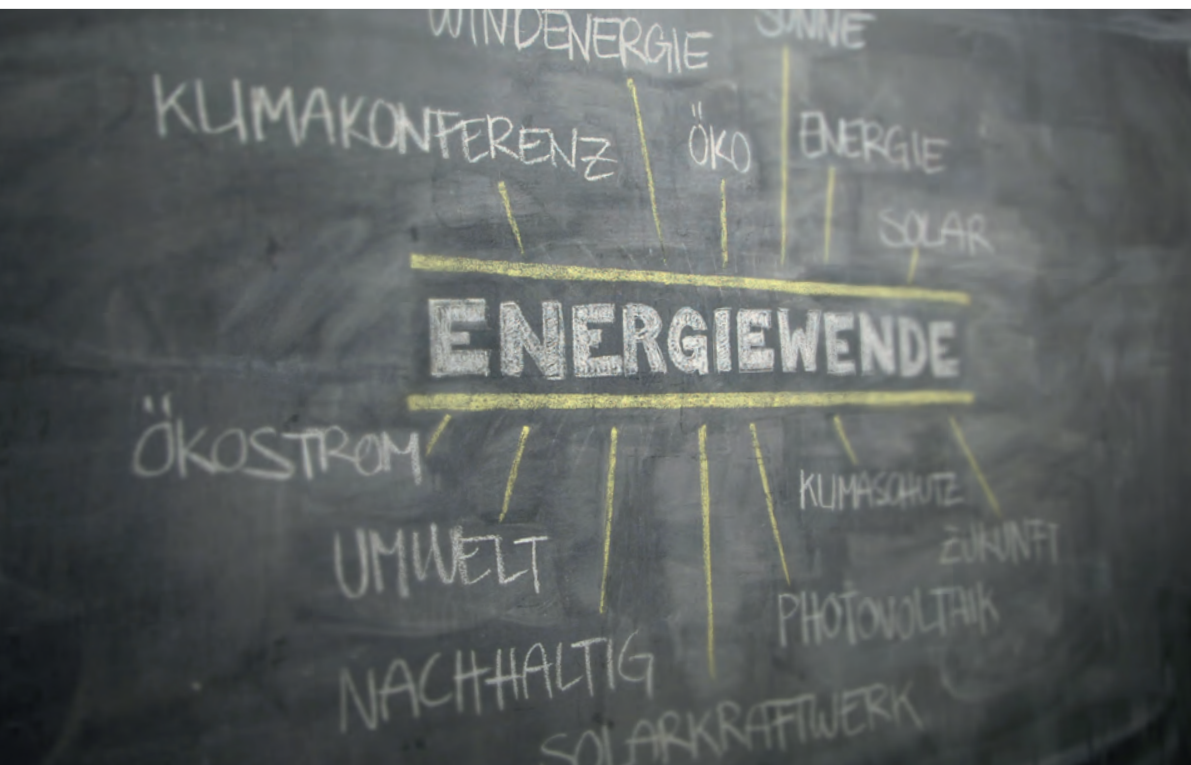 WINDENERGIE
SONNE
KLIMAKONFERENZ
ÖKO
ENERGIE
SOLAR
ENERGIEWENDE
ÖKOSTROM
KLIMASCHUTZ
UMWELT
ZUKUNFT
PHOTOVOLTAIK
NACHHALTIG
SOLARKRAFTWERK